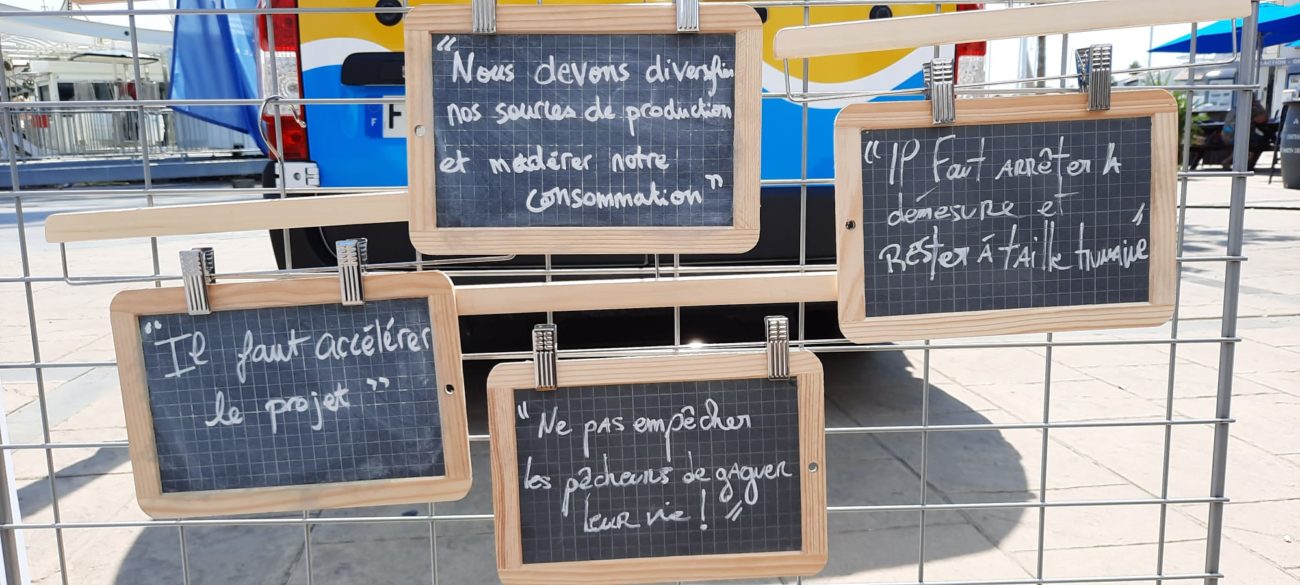 “Nous devons diversifier
nos sources de production
et modérer notre
consommation”
“IP Faut ARRÊTER LA
démesure et
RESTER À TAILLE HUMAINE”
“Il faut accélérer
le projet”
“Ne pas empêcher
les pêcheurs de gagner
leur vie !”
F